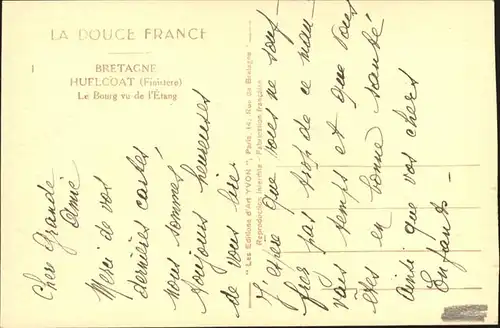 LA DOUCE FRANCE
1
BRETAGNE
HUELGOAT (Finistère)
Le Bourg vu de l'Étang
"Les Editions d'Art YVON", Paris, 14, Rue
Reproduction interdite - Fabrication française
Chère Grande
Amie
Merci de vos
dernières cartes
nous sommes
toujours heureuses
de vous lire.
J'espère que vous ne souf-
frez pas trop de ce mau-
vais temps et que vous
êtes en bonne santé
ainsi que vos chers
Enfants -